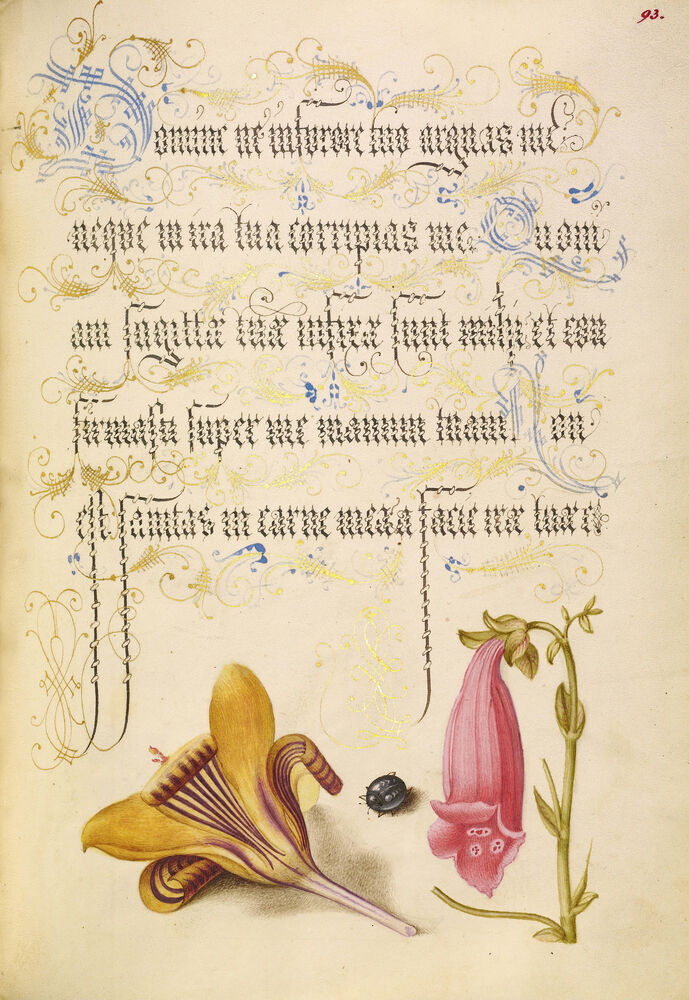 93.
Domine ne in furore tuo arguas me
neque in ira tua corripias me. Quoni
am sagittæ tuæ infixæ sunt mihi, et con
firmasti super me manum tuam. Non
est sanitas in carne mea a facie iræ tuæ